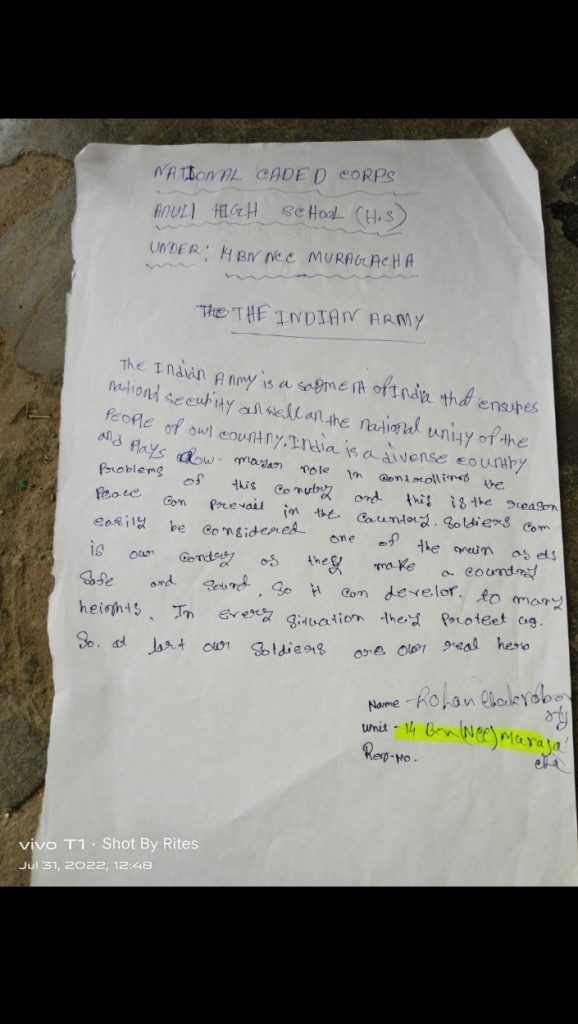 NATIONAL CADED CORPS
ANULI HIGH SCHOOL (H.S)
UNDER: 14 BN NCC MURAGACHA
THE INDIAN ARMY
The Indian Army is a segment of India that ensures
national security as well as the national unity of the
People of our country. India is a diverse country
and Plays major role in controlling the
Problems of this country and this is the reason
Peace can prevail in the country. Soldiers can
easily be considered one of the main assets
is our as they make a country
Safe and Sound, So it can develop. to many
heights. In every Situation they Protect us.
So. at last our Soldiers are our real hero
Name - Rohan Chakrabor
ty
Unit - 14 Ben (Ncc) Muraga
cha
Reg-No.
vivo T1 · Shot By Rites
Jul 31, 2022, 12:48